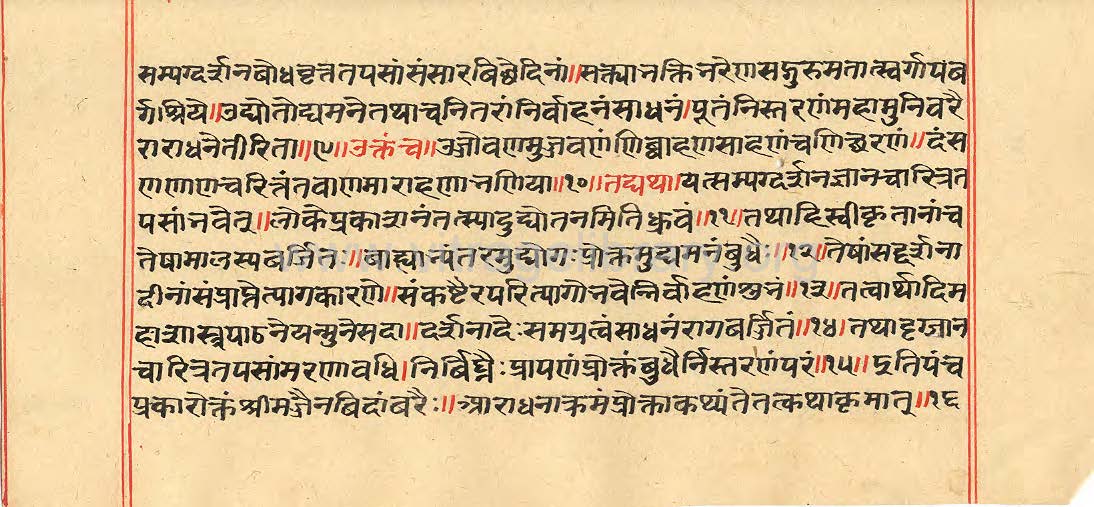 सम्यग्दर्शनबोधवृत्ततपसां संसारबिछेदिनां॥ सक्त्यानक्तिनरेणसद्गुरुमतात्स्वर्गापब
र्गश्रिये॥ उद्योतोद्यमनेतथाचनितरांनिर्वाहनंसाधनं। पूतंनिस्तरणंमहामुनिवरै
राराधनेतीरिता॥९॥ उक्तंच॥ उज्जोवणमुज्जवणंणिव्वाहणसाहणंचणिच्छरणं॥ दंस
णणाणचरित्तंतवाणमाराहणानणिया॥१०॥ तद्यथा॥ यत्सम्यग्दर्शनज्ञानचारित्रत
पसांनवेत्॥ लोकेप्रकाशनंतत्स्यादुद्योतनमितिध्रुवं॥११॥ तथाहिस्वीकृतानांच
तेषामालस्यबर्जितः॥ बाह्याभ्यंतरमुद्योगःप्रोक्तमुद्यमनंबुधैः॥१२॥ तेषांसद्दर्शना
दीनांसंप्राप्तेत्यागकारणे॥ संकष्टैरपरित्यागोनवेन्निर्वाहणंशुनं॥१३॥ तत्वार्थादिम
हाशास्त्रपाठनेयन्मुनेसदा॥ दर्शनादेःसमग्रत्वंसाधनंरागबर्जितं॥१४॥ तथादृग्ज्ञान
चारित्रतपसांमरणावधि। निर्बिघ्नैःप्रापणंप्रोक्तंबुधैर्निस्तरणंपरं॥१५॥ इतिपंच
प्रकारोक्तंश्रीमज्जैनबिदांबरैः॥ आराधनाक्रमंप्रोक्ताकथ्यंतेतत्कथाकृमात्॥१६
www.vitragelibrary.org